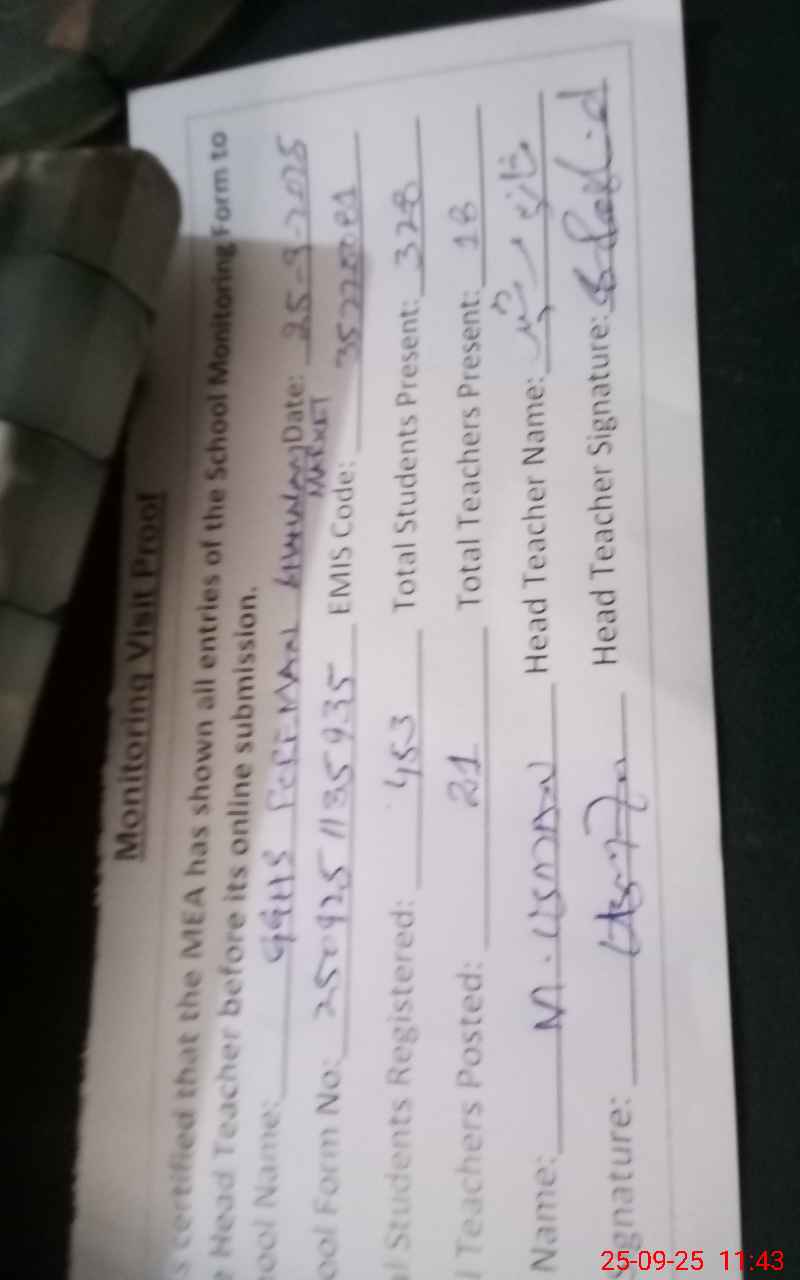 Monitoring Visit Proof
s certified that the MEA has shown all entries of the School Monitoring Form to
Head Teacher before its online submission.
ool Name: GGHS Date: 25-9-2025
MARKET
ool Form No: 250925 1135935 EMIS Code: 35220081
l Students Registered: 453 Total Students Present: 328
l Teachers Posted: 21 Total Teachers Present: 18
Name: M. USMAN Head Teacher Name:
ignature: Head Teacher Signature:
25-09-25 11:43